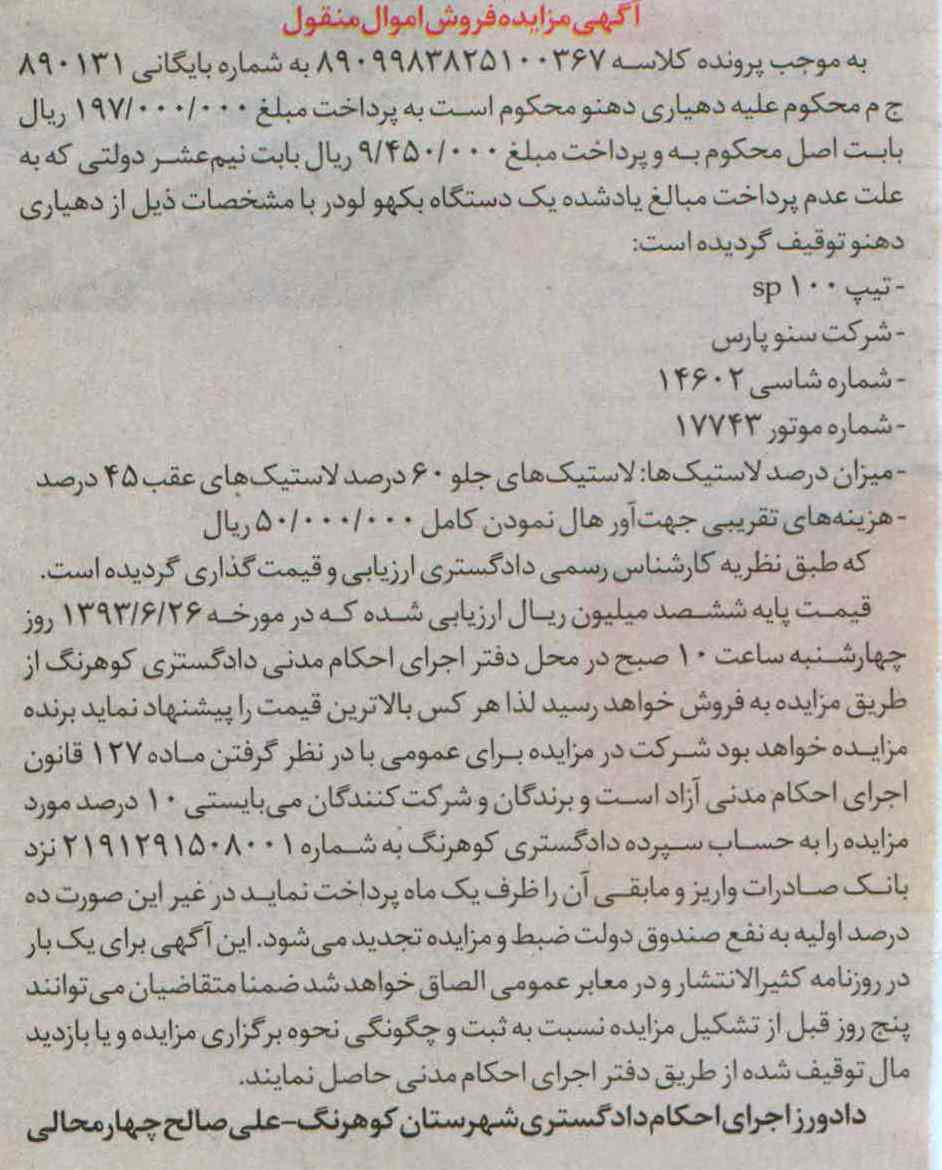 آگهی مزایده فروش اموال منقول
به موجب پرونده کلاسه ۸۹۰۹۹۸۳۸۲۵۱۰۰۳۶۷ به شماره بایگانی ۸۹۰۱۳۱
ج م محکوم علیه دهیاری دهنو محکوم است به پرداخت مبلغ ۱۹۷/۰۰۰/۰۰۰ ریال
بابت اصل محکوم به و پرداخت مبلغ ۹/۴۵۰/۰۰۰ ریال بابت نیم‌عشر دولتی که به
علت عدم پرداخت مبالغ یادشده یک دستگاه بکهو لودر با مشخصات ذیل از دهیاری
دهنو توقیف گردیده است:
- تیپ ۱۰۰ sp
- شرکت سنو پارس
- شماره شاسی ۱۴۶۰۲
- شماره موتور ۱۷۷۴۳
- میزان درصد لاستیک‌ها: لاستیک‌های جلو ۶۰ درصد لاستیک‌های عقب ۴۵ درصد
- هزینه‌های تقریبی جهت‌آور هال نمودن کامل ۵۰/۰۰۰/۰۰۰ ریال
که طبق نظریه کارشناس رسمی دادگستری ارزیابی و قیمت گذاری گردیده است.
قیمت پایه ششصد میلیون ریال ارزیابی شده که در مورخه ۱۳۹۳/۶/۲۶ روز
چهارشنبه ساعت ۱۰ صبح در محل دفتر اجرای احکام مدنی دادگستری کوهرنگ از
طریق مزایده به فروش خواهد رسید لذا هر کس بالاترین قیمت را پیشنهاد نماید برنده
مزایده خواهد بود شرکت در مزایده برای عمومی با در نظر گرفتن ماده ۱۲۷ قانون
اجرای احکام مدنی آزاد است و برندگان و شرکت کنندگان می‌بایستی ۱۰ درصد مورد
مزایده را به حساب سپرده دادگستری کوهرنگ به شماره ۲۱۹۱۲۹۱۵۰۸۰۰۱ نزد
بانک صادرات واریز و مابقی آن را ظرف یک ماه پرداخت نماید در غیر این صورت ده
درصد اولیه به نفع صندوق دولت ضبط و مزایده تجدید می‌شود. این آگهی برای یک بار
در روزنامه کثیرالانتشار و در معابر عمومی الصاق خواهد شد ضمنا متقاضیان می‌توانند
پنج روز قبل از تشکیل مزایده نسبت به ثبت و چگونگی نحوه برگزاری مزایده و یا بازدید
مال توقیف شده از طریق دفتر اجرای احکام مدنی حاصل نمایند.
دادورز اجرای احکام دادگستری شهرستان کوهرنگ-علی صالح چهارمحالی